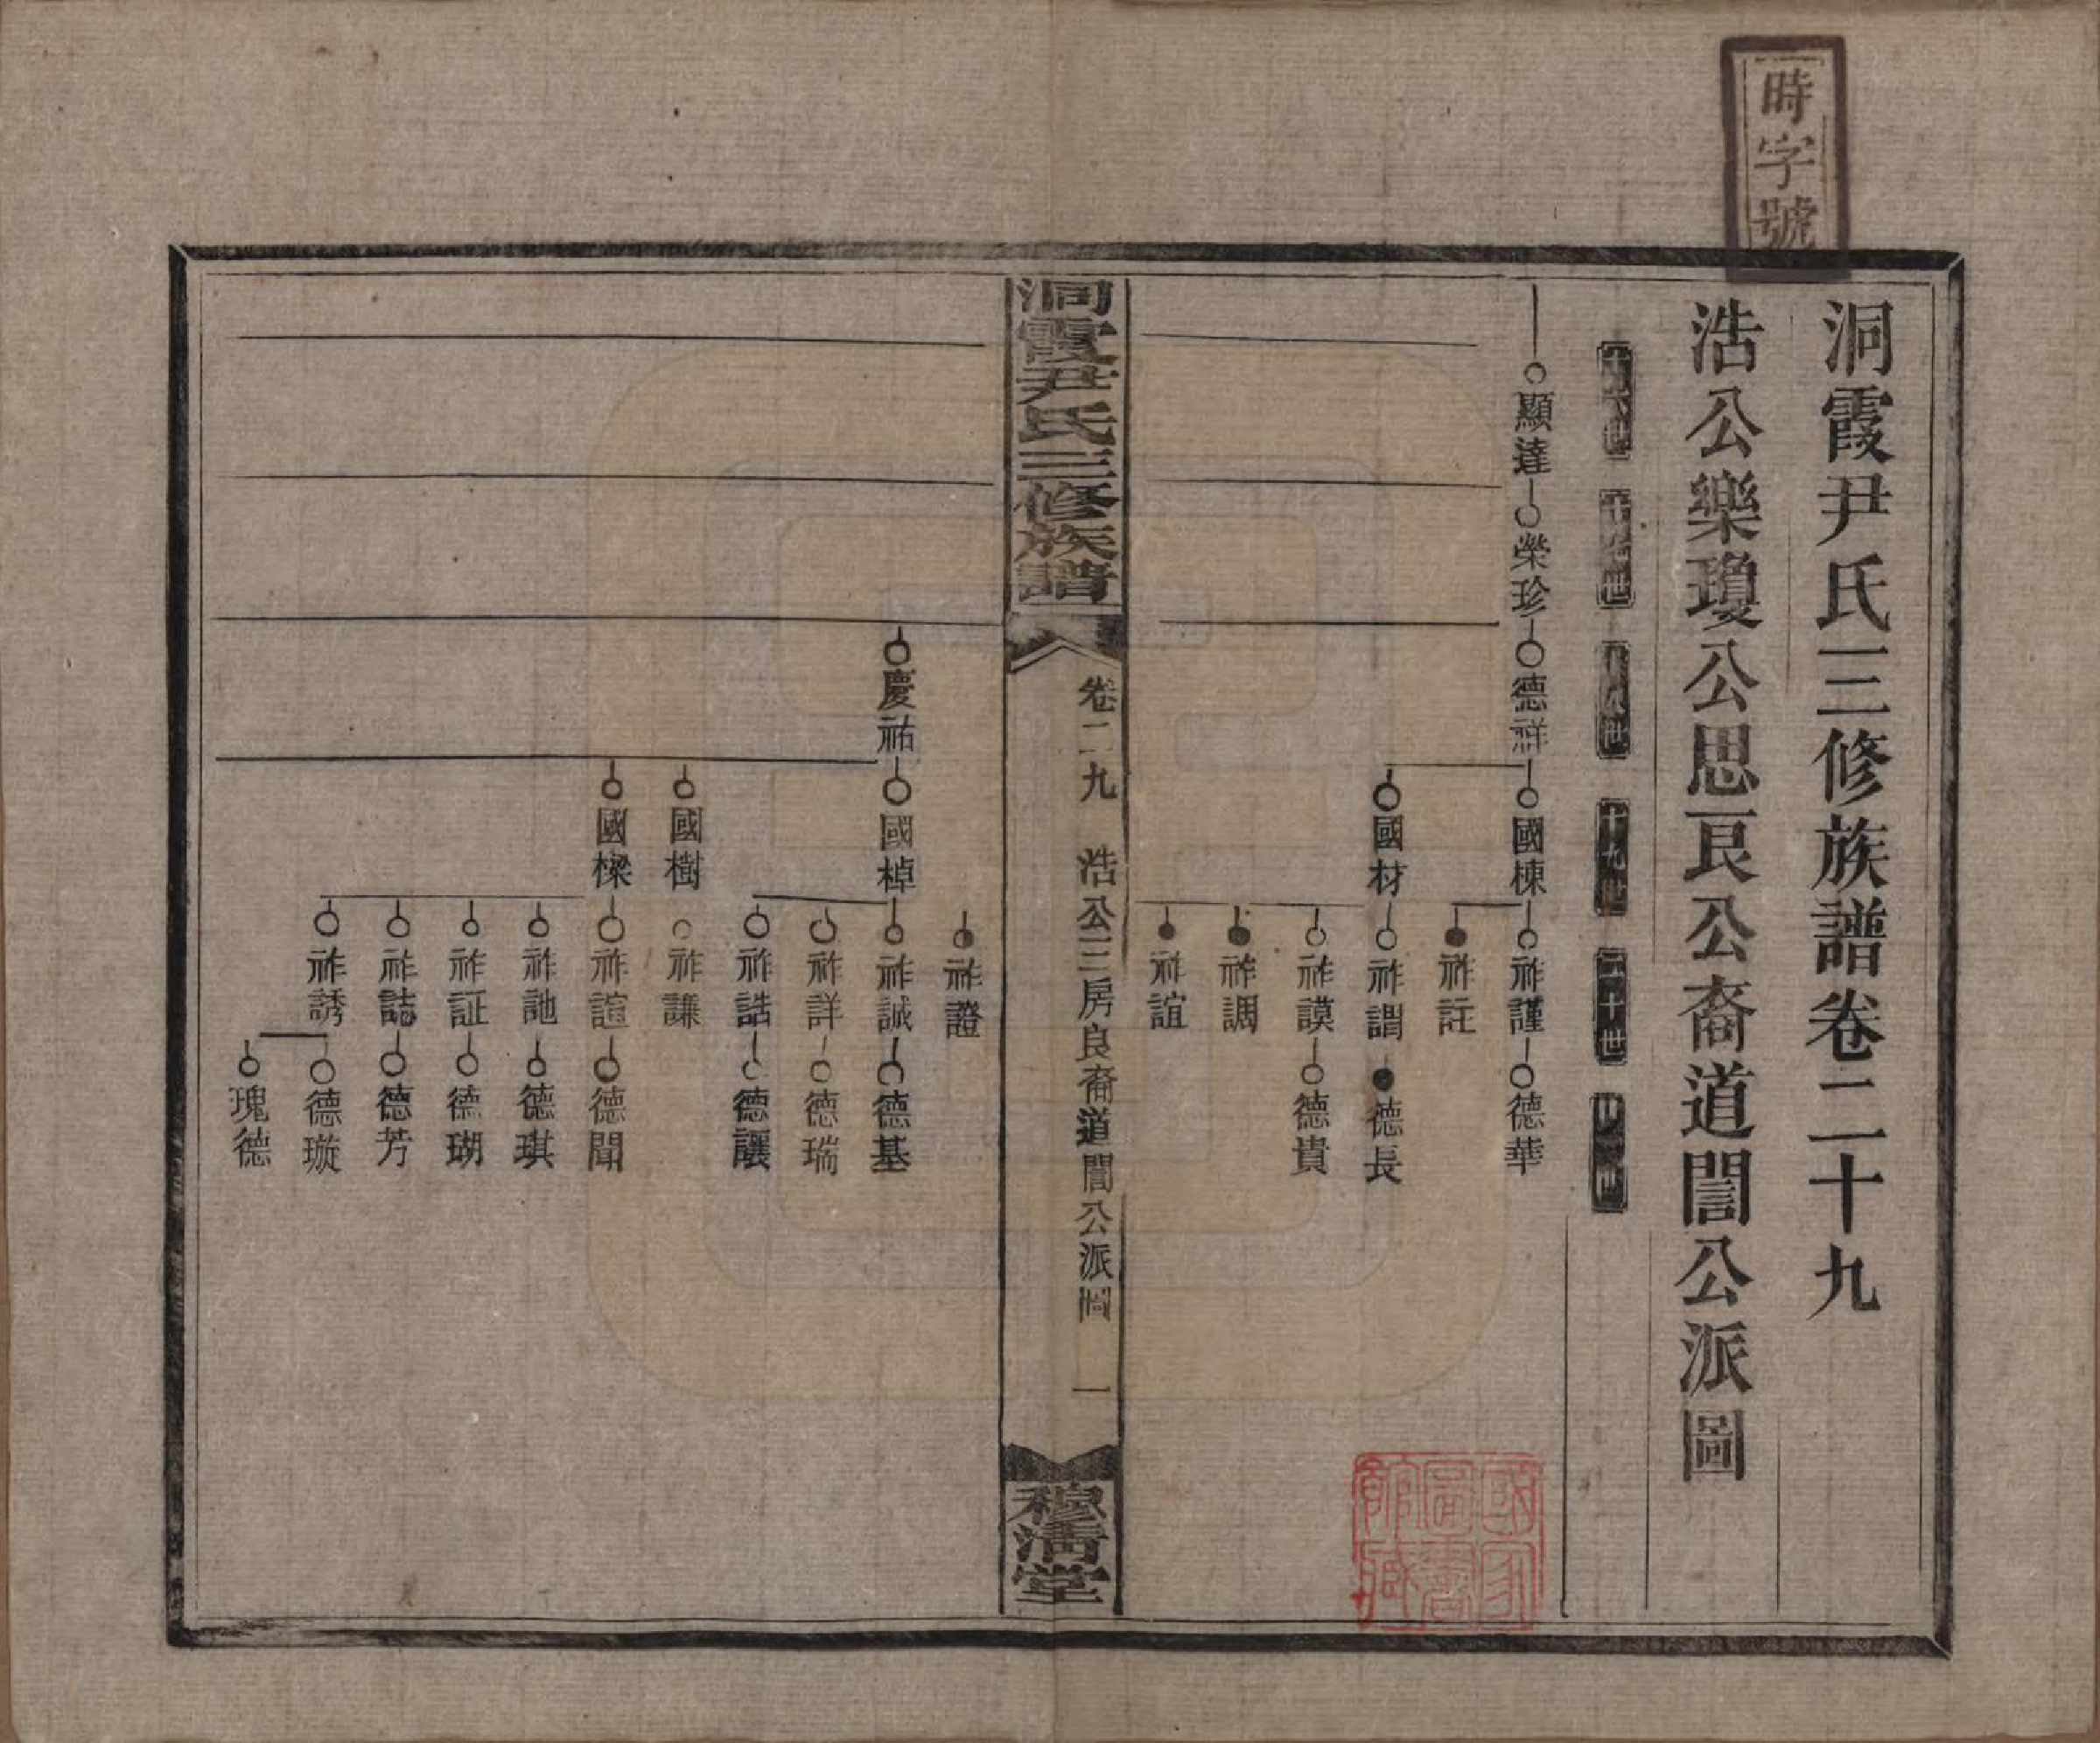 時字號
洞霞尹氏三修族譜卷二十九
浩公樂瓊公思良公裔道誾公派圖
十六世 十七世 十八世 十九世 二十世 廿一世
顯達 榮珍 德祥 國棟 祚謹 德華
祚註
國材 祚謂 德長
祚謨 德貴
祚調
祚誼
洞霞尹氏三修族譜
卷二九 浩公三房良裔道誾公派圖 一
穆清堂
祚證
慶祐 國棹 祚誠 德基
祚詳 德瑞
祚誥 德讓
國樹 祚謙
國樑 祚諠 德聞
祚訑 德琪
祚証 德瑚
祚誌 德芳
祚誘 德璇
瑰德
國家圖書館藏